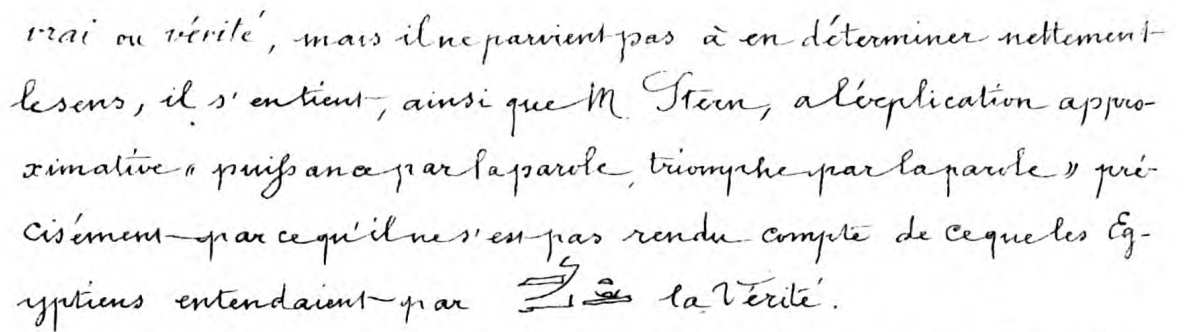 vrai ou vérité, mais il ne parvient pas à en déterminer nettement
le sens, il s'en tient, ainsi que M Stern, a l'explication appro-
ximative « puissance par la parole, triomphe par la parole » pré-
cisément par ce qu'il ne s'est pas rendu compte de ce que les Eg-
yptiens entendaient par la Vérité.